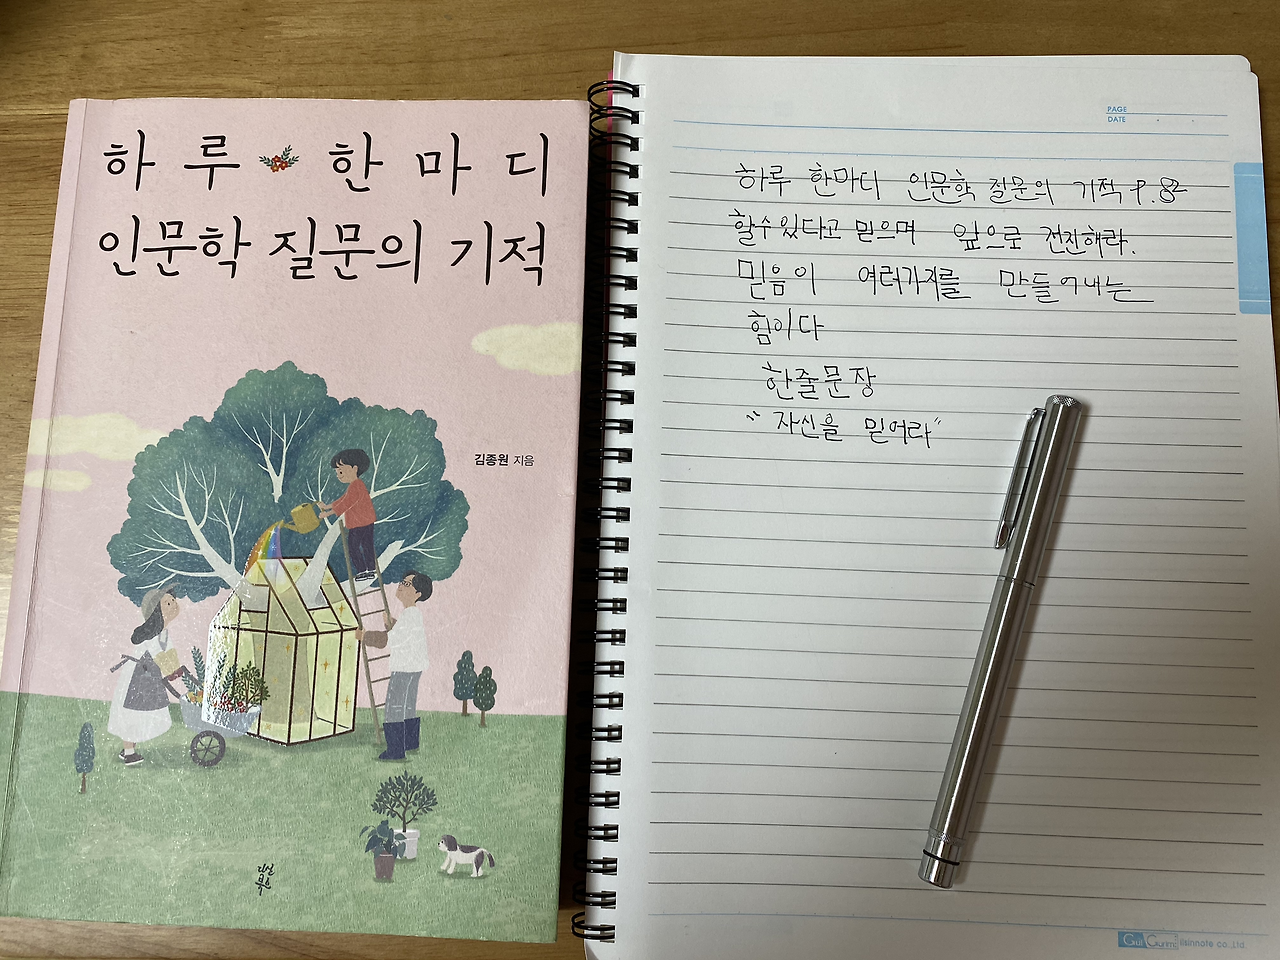 하루 한마디
인문학 질문의 기적
김종원 지음
다산
북스
PAGE
DATE
하루 한마디 인문학 질문의 기적 P.82
할수있다고 믿으며 앞으로 전진해라.
믿음이 여러가지를 만들어내는
힘이다
한줄문장
"자신을 믿어라"
Gul Gurimi lisinnote co.,Ltd